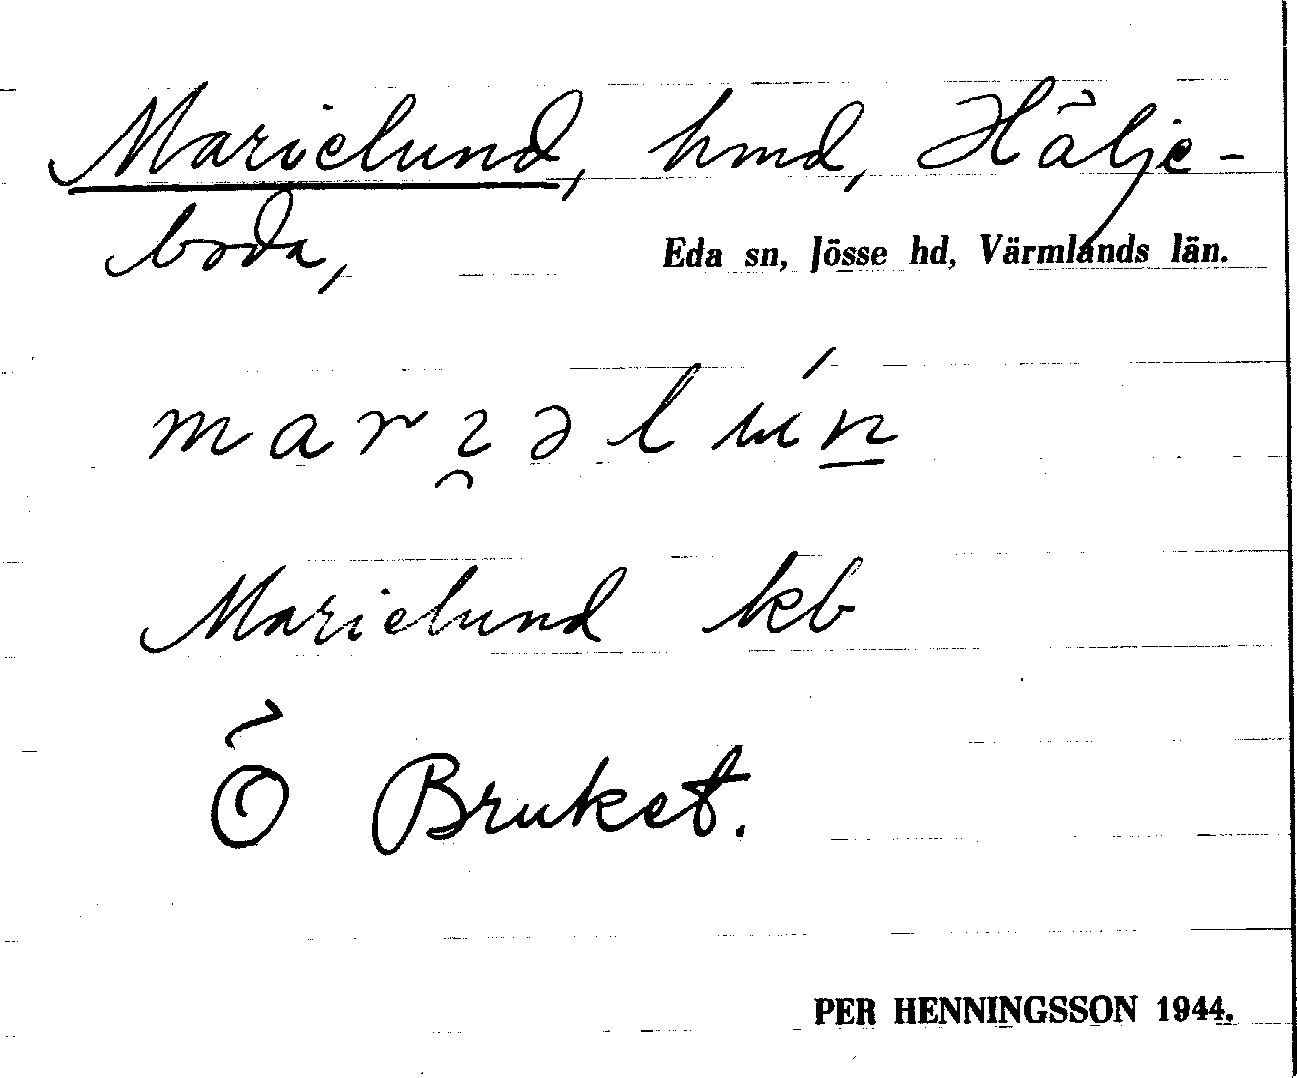 Marielund, hmd, Hälje-
boda, Eda sn, Jösse hd, Värmlands län.
Marielund kb
Ö Bruket.
PER HENNINGSSON 1944.